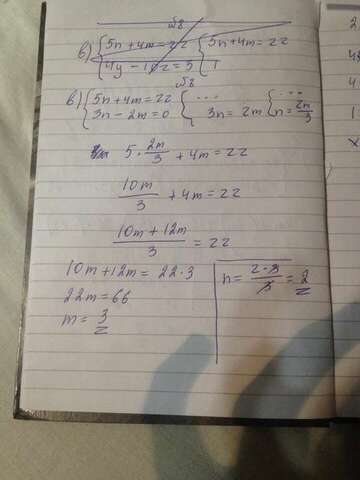 №8
в) { 5n + 4m = 22 { 5n + 4m = 22
№8
в) { 5n + 4m = 22 { ... { ...
3n - 2m = 0 3n = 2m n = 2m/3
5 · 2m/3 + 4m = 22
10m/3 + 4m = 22
(10m + 12m)/3 = 22
10m + 12m = 22 · 3
22m = 66
m = 3
n = (2 · 3)/3 = 2